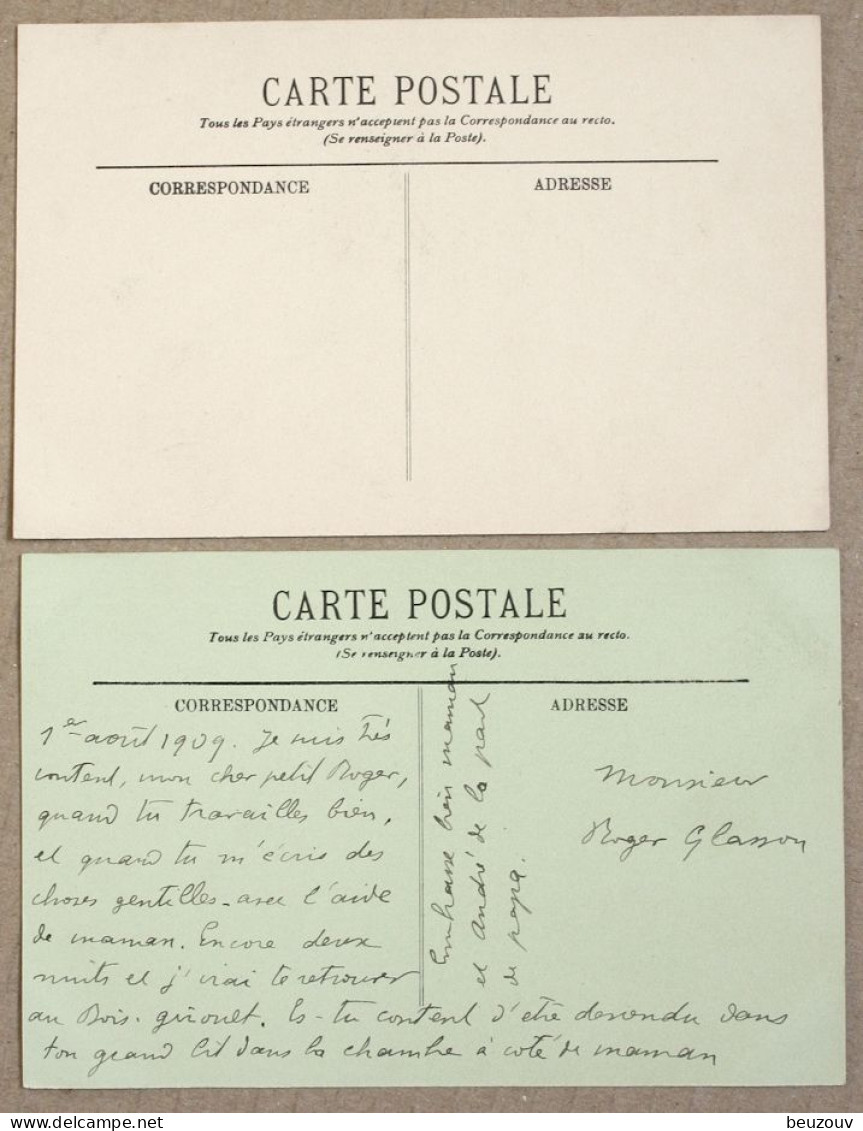 CARTE POSTALE
Tous les Pays étrangers n'acceptent pas la Correspondance au recto.
(Se renseigner à la Poste).
CORRESPONDANCE
ADRESSE
CARTE POSTALE
Tous les Pays étrangers n'acceptent pas la Correspondance au recto.
(Se renseigner à la Poste).
CORRESPONDANCE
ADRESSE
1er août 1909. Je suis très
content, mon cher petit Roger,
quand tu travailles bien,
et quand tu m'écris des
choses gentilles avec l'aide
de maman. Encore deux
nuits et j'irai te retrouver
au Bois-girouet. Es-tu content d'être descendu dans
ton grand lit dans la chambre à côté de maman
Embrasse bien maman
et André de la part
de papa.
Monsieur
Roger Glasson
delcampe.net
beuzouv